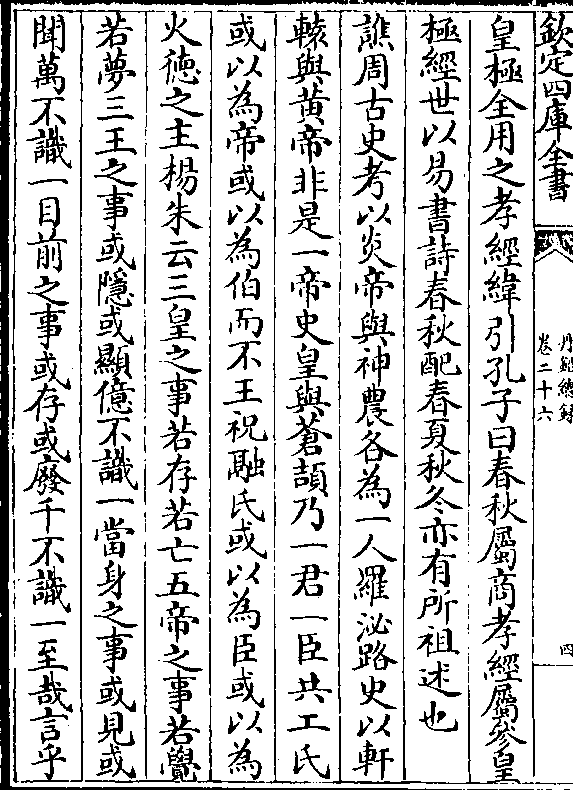 欽定四庫全書
丹鉛總錄
卷二十六
四
皇極全用之孝經緯引孔子曰春秋屬商孝經屬參皇
極經世以易書詩春秋配春夏秋冬亦有所祖述也
譙周古史考以炎帝與神農各為一人羅泌路史以軒
轅與黃帝非是一帝史皇與蒼頡乃一君一臣共工氏
或以為帝或以為伯而不王祝融氏或以為臣或以為
火徳之主楊朱云三皇之事若存若亡五帝之事若覺
若夢三王之事或隱或顯億不識一當身之事或見或
聞萬不識一目前之事或存或廢千不識一至哉言乎